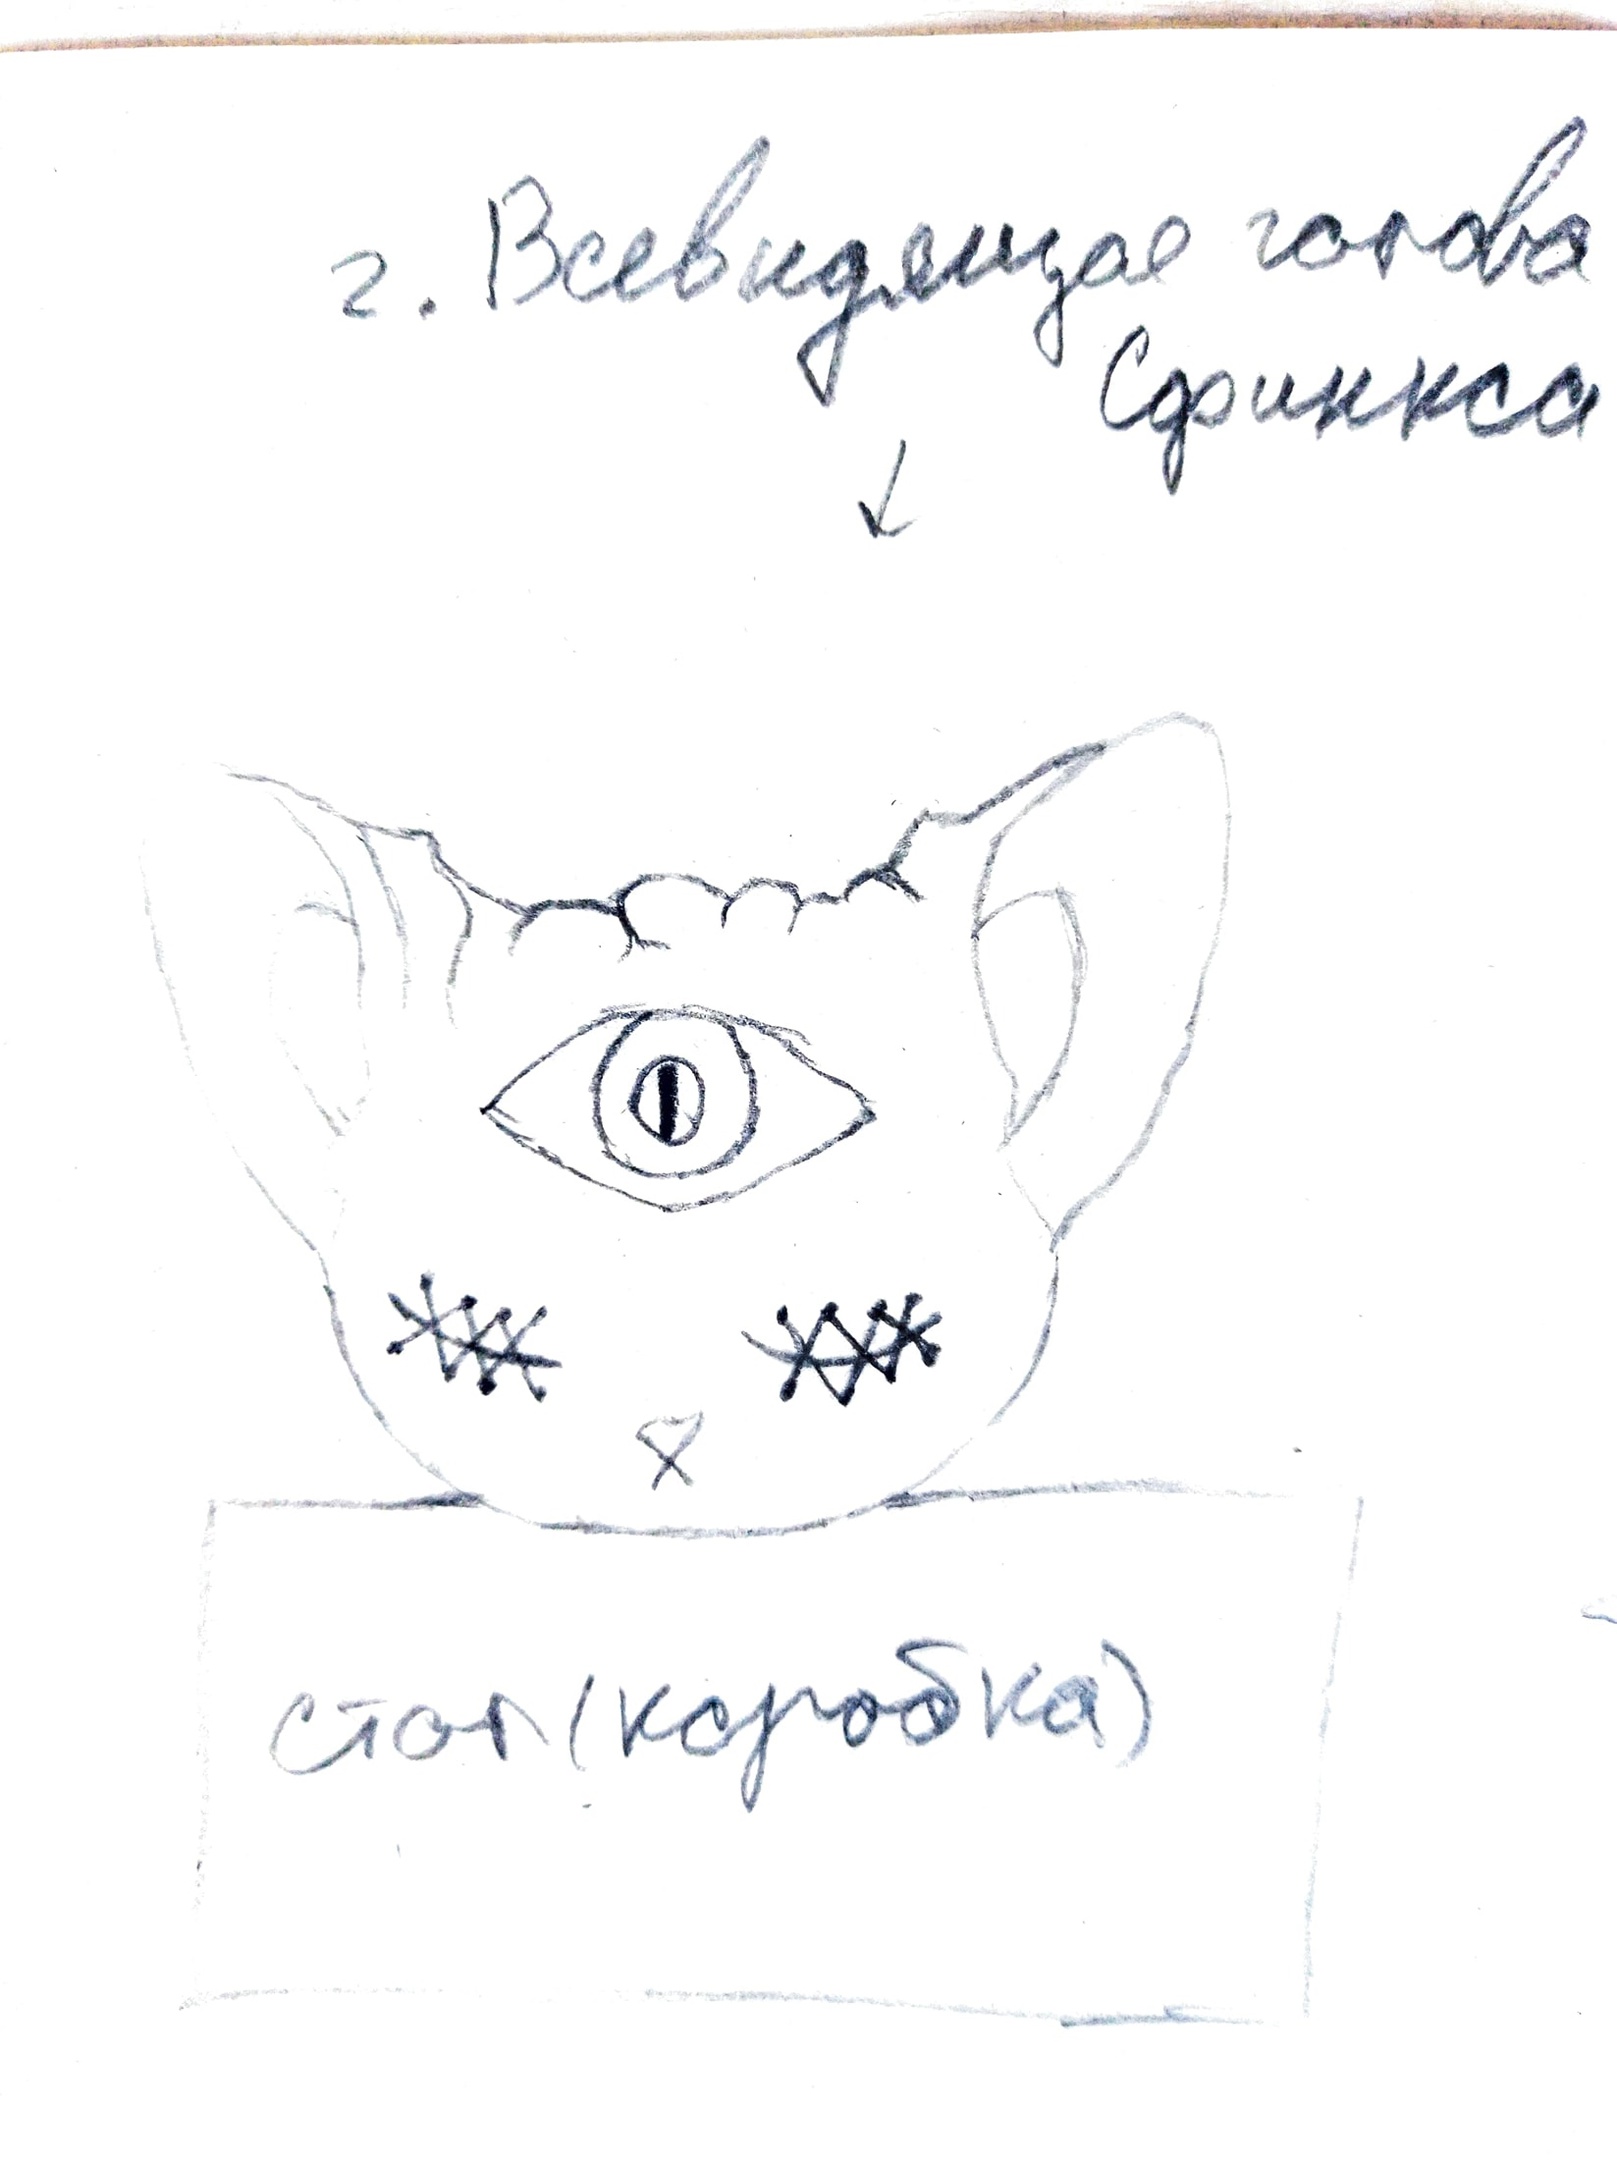 2. Всевидящая голова
Сфинкса
стол (коробка)